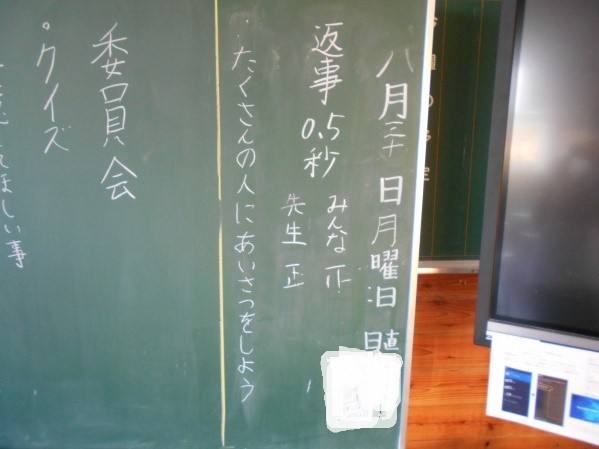 今週の予定
八月三十日月曜日 日直
返事 0.5秒
みんな 正
先生 正
・たくさんの人にあいさつをしよう
委員会
・クイズ
てほしい事